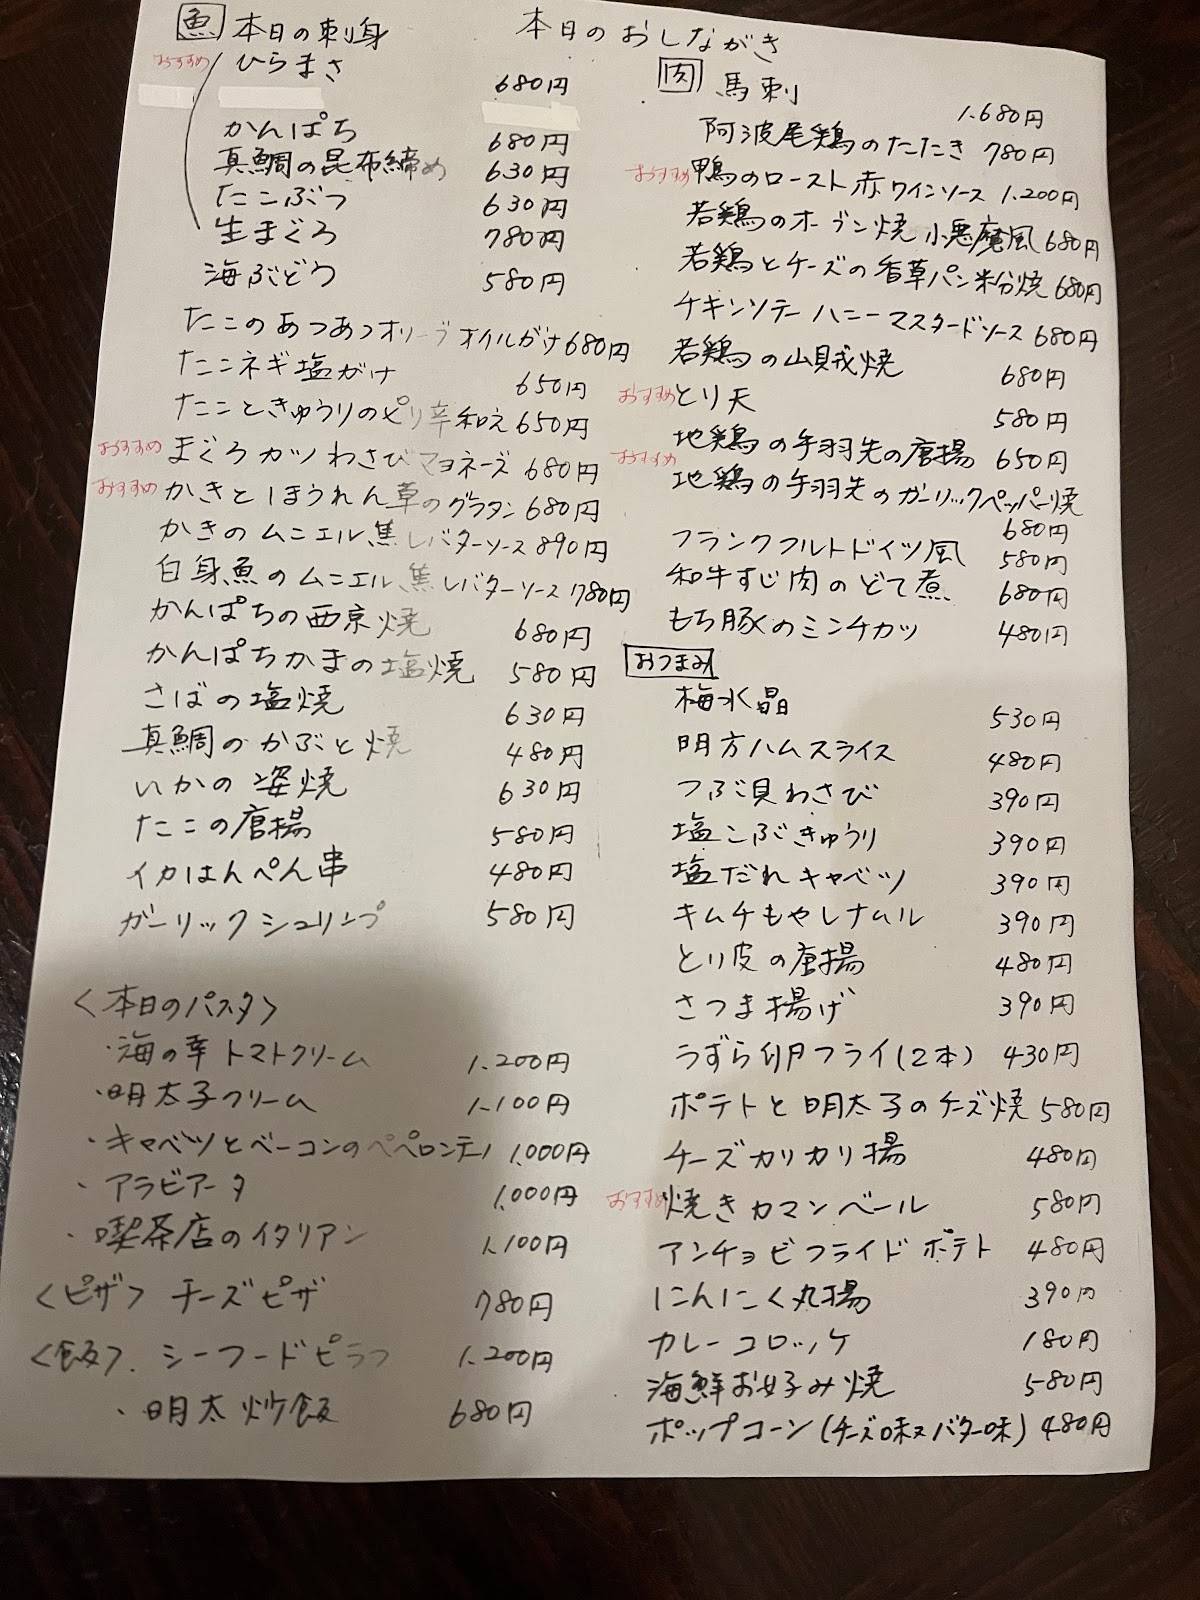 本日のおしながき
魚 本日の刺身
おすすめ ひらまさ 680円
かんぱち 680円
真鯛の昆布締め 630円
たこぶつ 630円
生まぐろ 780円
海ぶどう 580円
たこのあつあつオリーブオイルがけ 680円
たこネギ塩がけ 650円
たこときゅうりのピリ辛和え 650円
おすすめ まぐろカツわさびマヨネーズ 680円
おすすめ かきとほうれん草のグラタン 680円
かきのムニエル焦しバターソース 890円
白身魚のムニエル焦しバターソース 780円
かんぱちの西京焼 680円
かんぱちかまの塩焼 580円
さばの塩焼 630円
真鯛のかぶと焼 480円
いかの姿焼 630円
たこの唐揚 580円
イカはんぺん串 480円
ガーリックシュリンプ 580円
<本日のパスタ>
・海の幸トマトクリーム 1.200円
・明太子クリーム 1.100円
・キャベツとベーコンのペペロンチーノ 1,000円
・アラビアータ 1,000円
・喫茶店のイタリアン 1.100円
<ピザ> チーズピザ 780円
<飯>. シーフードピラフ 1.200円
・明太炒飯 680円
肉 馬刺 1.680円
阿波尾鶏のたたき 780円
おすすめ 鴨のロースト赤ワインソース 1.200円
若鶏のオーブン焼 小悪魔風 680円
若鶏とチーズの香草パン粉焼 680円
チキンソテーハニーマスタードソース 680円
若鶏の山賊焼 680円
おすすめ とり天 580円
地鶏の手羽先の唐揚 650円
おすすめ 地鶏の手羽先のガーリックペッパー焼 680円
フランクフルトドイツ風 580円
和牛すじ肉のどて煮 680円
もち豚のミンチカツ 480円
おつまみ
梅水晶 530円
明方ハムスライス 480円
つぶ貝わさび 390円
塩こぶきゅうり 390円
塩だれキャベツ 390円
キムチもやしナムル 390円
とり皮の唐揚 480円
さつま揚げ 390円
うずら卵フライ(2本) 430円
ポテトと明太子のチーズ焼 580円
チーズカリカリ揚 480円
おすすめ 焼きカマンベール 580円
アンチョビフライドポテト 480円
にんにく丸揚 390円
カレーコロッケ 180円
海鮮お好み焼 580円
ポップコーン(チーズ味又バター味) 480円